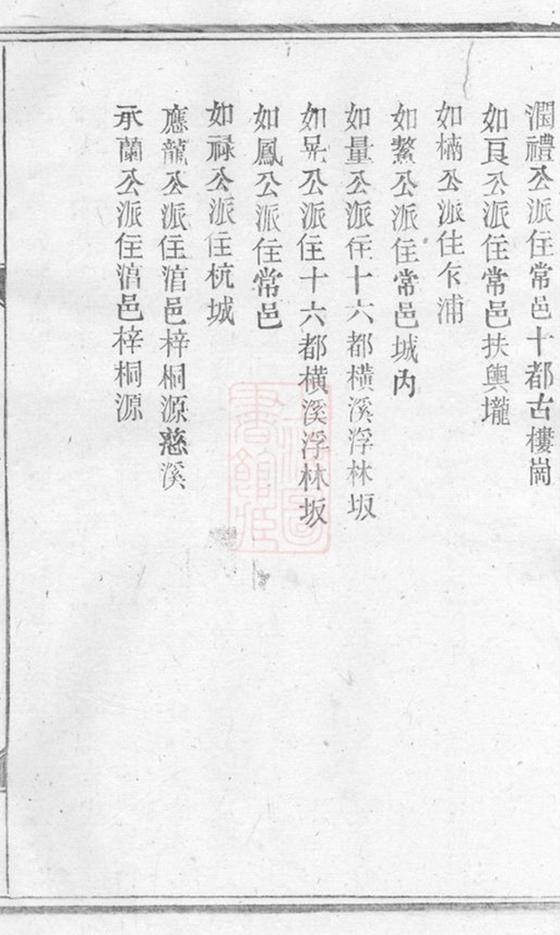 潤禮公派住常邑十都古樓崗
如良公派住常邑扶輿壠
如楠公派住乍浦
如鰲公派住常邑城內
如量公派住十六都橫溪浮林坂
如晃公派住十六都橫溪浮林坂
如鳳公派住常邑
如祿公派住杭城
應龍公派住淯邑梓桐源慈溪
承蘭公派住淯邑梓桐源